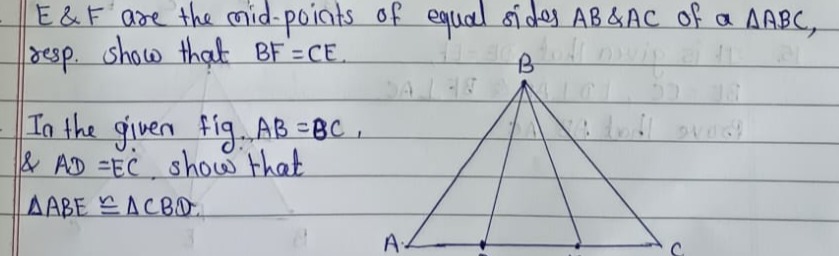 E & F are the mid-points of equal sides AB & AC of a ΔABC,
resp. show that BF = CE.
B
In the given fig. AB = BC,
& AD = EC. show that
ΔABE ≅ ΔCBD.
A
C